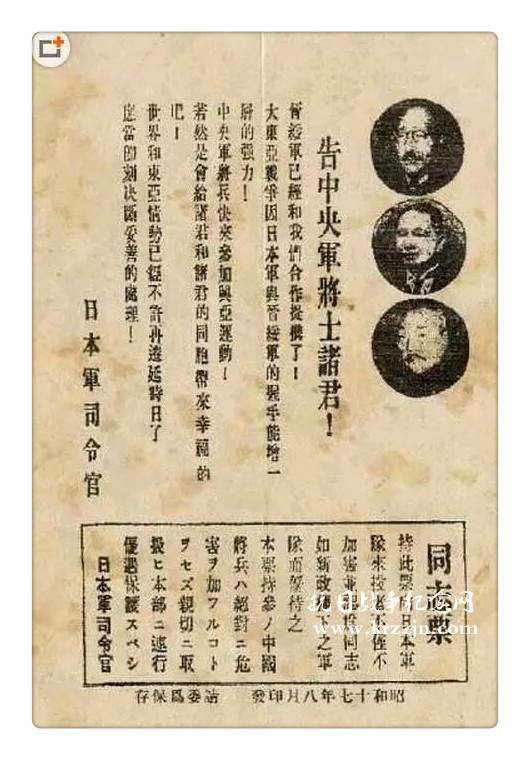 告中央軍將士諸君！
晉綏軍已經和我們合作提携了！
大東亞戰爭因日本軍與晉綏軍的握手能增一
層的强力！
中央軍將兵快來參加興亞運動！
若然是會給諸君和諸君的同胞帶來幸福的
吧！
世界和東亞情勢已經不許再遷延時日了
應當即刻决斷妥善的處理！
日本軍司令官
同志票
持此票向日本軍
隊來投
加害並
同志
如新政
下之軍
隊而優待之
本票持參ノ中國
將兵ハ絕對ニ危
害ヲ加フルコト
ヲセズ親切ニ取
扱ヒ本部ニ連行
優遇保護スベシ
日本軍司令官
昭和十七年八月印發
請委爲保存
抗日战争纪念网
www.krzzjn.com